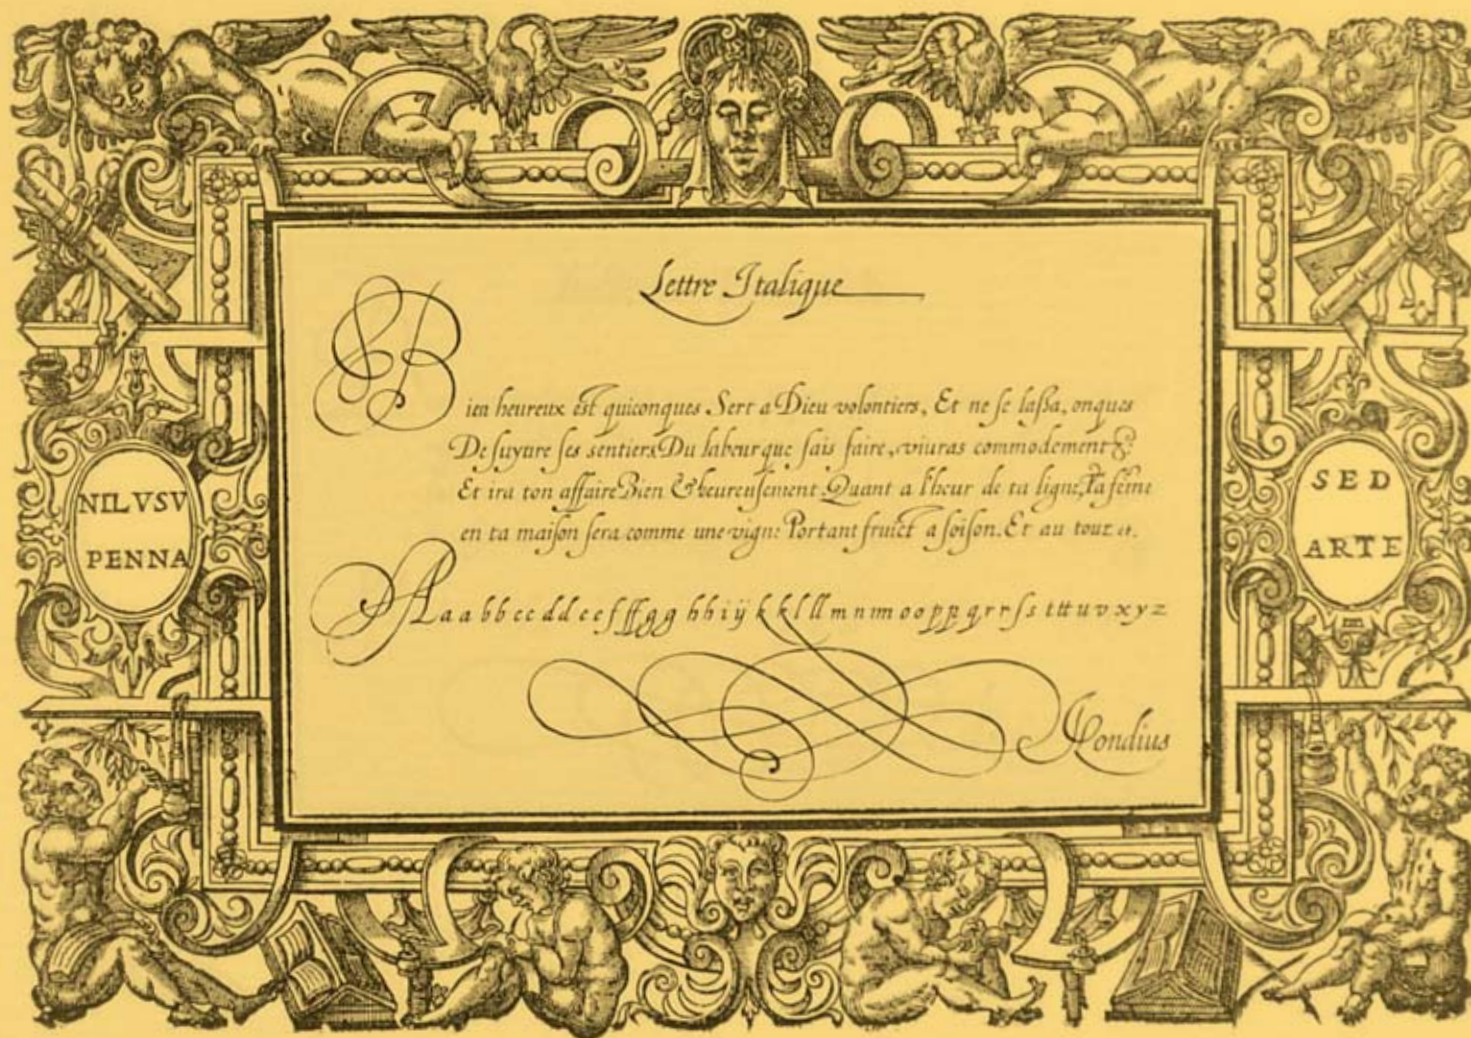 Lettre Italique
Bien heureux est quiconques Sert a Dieu volontiers, Et ne se laßa, onques
De suyure ses sentiers Du labeur que sais faire, viuras commodement &
Et ira ton affaire Bien & heureusement Quant a l'heur de ta ligne, Ta fẽme
en ta maison sera comme une vign: Portant fruict a foison. Et au tour
NIL VSV
PENNA
SED
ARTE
A a a b b c c d d e e f ff g g h h i ÿ k k l ll m n m o o p p q r r ſ s t tt u v x y z
Hondius